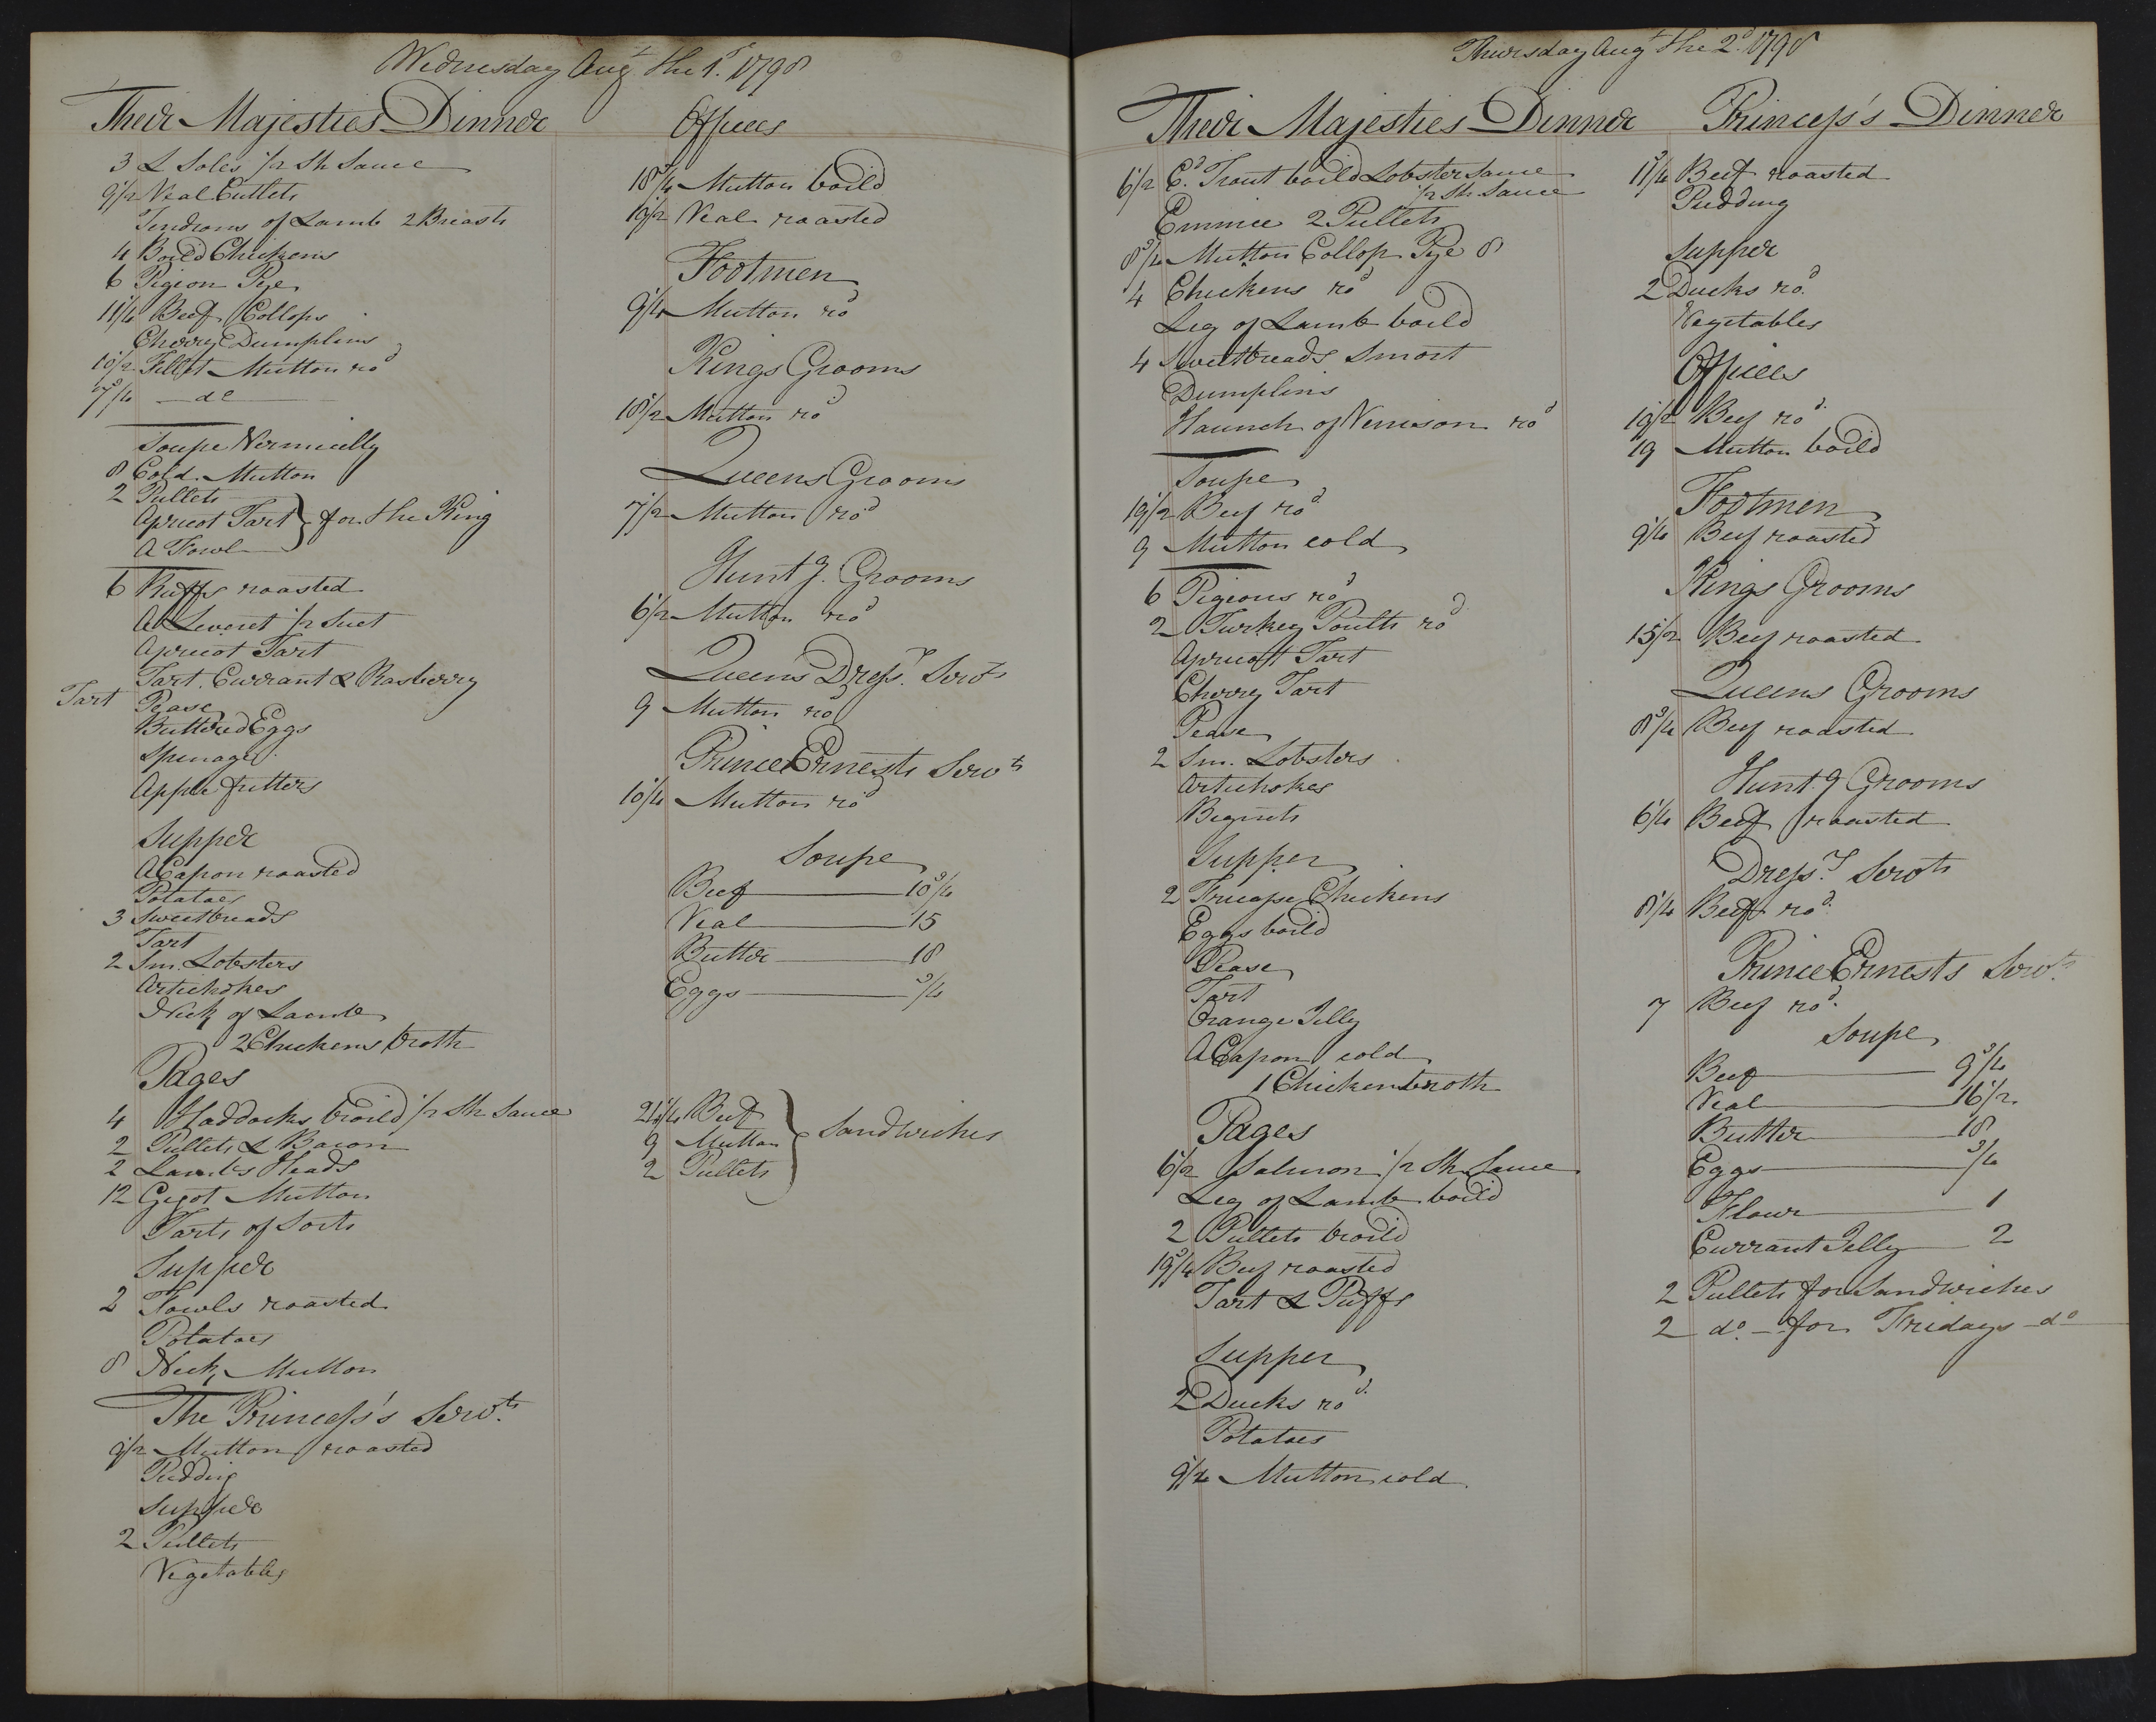 Wednesday Augt the 1st 1798
Their Majesties Dinner
3 L Soles 1/2 Sh Sauce
9 1/2 Veal Cutlets
Tendrons of Lamb 2 Breasts
4 Boild Chickens
6 Pigeon Pye
11 1/4 Beef Collops
Cherry Dumplins
10 1/2 Fillet Mutton rod
7 3/4 — do —
Soupe Vermicelly
8 Cold Mutton
2 Pullets
Apricot Tart } for the King
A Fowl
6 Ruffs roasted
A Leveret 1/2 Suet
Apricot Tart
Tart Currant & Rasberry
Tart Pease
Buttered Eggs
Spinage
Apple fritters
Supper
A Capon roasted
Potatoes
3 Sweetbreads
Tart
2 Sm. Lobsters
Artichokes
Neck of Lamb
2 Chickens broth
Pages
4 Haddocks broild 1/2 Sh Sauce
2 Pullets & Bacon
2 Lambs Heads
12 Gigot Mutton
Tarts of Sorts
Supper
2 Fowls roasted
Potatoes
8 Neck Mutton
The Princess's Servts
9 1/2 Mutton roasted
Pudding
Supper
2 Pullets
Vegetables
Offices
18 3/4 Mutton boild
19 1/2 Veal roasted
Footmen
9 1/4 Mutton rod
Kings Grooms
18 1/2 Mutton rod
Queens Grooms
7 1/2 Mutton rod
Huntg. Grooms
6 1/2 Mutton rod
Queens Dressr. Servts
9 Mutton rod
Prince Ernests Servts
10 1/4 Mutton rod
Soupe
Beef — 10 3/4
Veal — 15
Butter — 18
Eggs — 3/4
21 1/4 Beef
9 Mutton } Sandwiches
2 Pullets
Thursday Augt the 2d 1798
Their Majesties Dinner
6 1/2 Cd. Trout boild Lobster Sauce
1/2 Sh Sauce
Emince 2 Pullets
8 3/4 Mutton Collop Pye 8
4 Chickens rod
Leg of Lamb boild
4 Sweetbreads Smort
Dumplins
Haunch of Venison rod
Soupe
19 1/2 Beef rod
9 Mutton cold
6 Pigeons rod
2 Turkey Poults rod
Apricott Tart
Cherry Tart
Pease
2 Sm. Lobsters
Artichokes
Beginets
Supper
2 Fricasse Chickens
Eggs boild
Pease
Tart
Orange Jelly
A Capon cold
1 Chicken broth
Pages
6 1/2 Salmon 1/2 Sh Sauce
Leg of Lamb boild
2 Pullets broild
19 3/4 Beef roasted
Tart & Puffs
Supper
2 Ducks rod
Potatoes
9 1/2 Mutton cold
Princess's Dinner
11 3/4 Beef roasted
Pudding
Supper
2 Ducks rod
Vegetables
Offices
19 1/2 Beef rod
19 Mutton boild
Footmen
9 1/4 Beef roasted
Kings Grooms
15 1/2 Beef roasted
Queens Grooms
8 3/4 Beef roasted
Hunt.g Grooms
6 1/4 Beef roasted
Dressr. Servts
8 1/4 Beef rod
Prince Ernests Servts
7 Beef rod
Soupe
Beef — 9 3/4
Veal — 16 1/2
Butter — 18
Eggs — 3/4
Flour — 1
Currant Jelly — 2
2 Pullets for Sandwiches
2 do — for Fridays — do